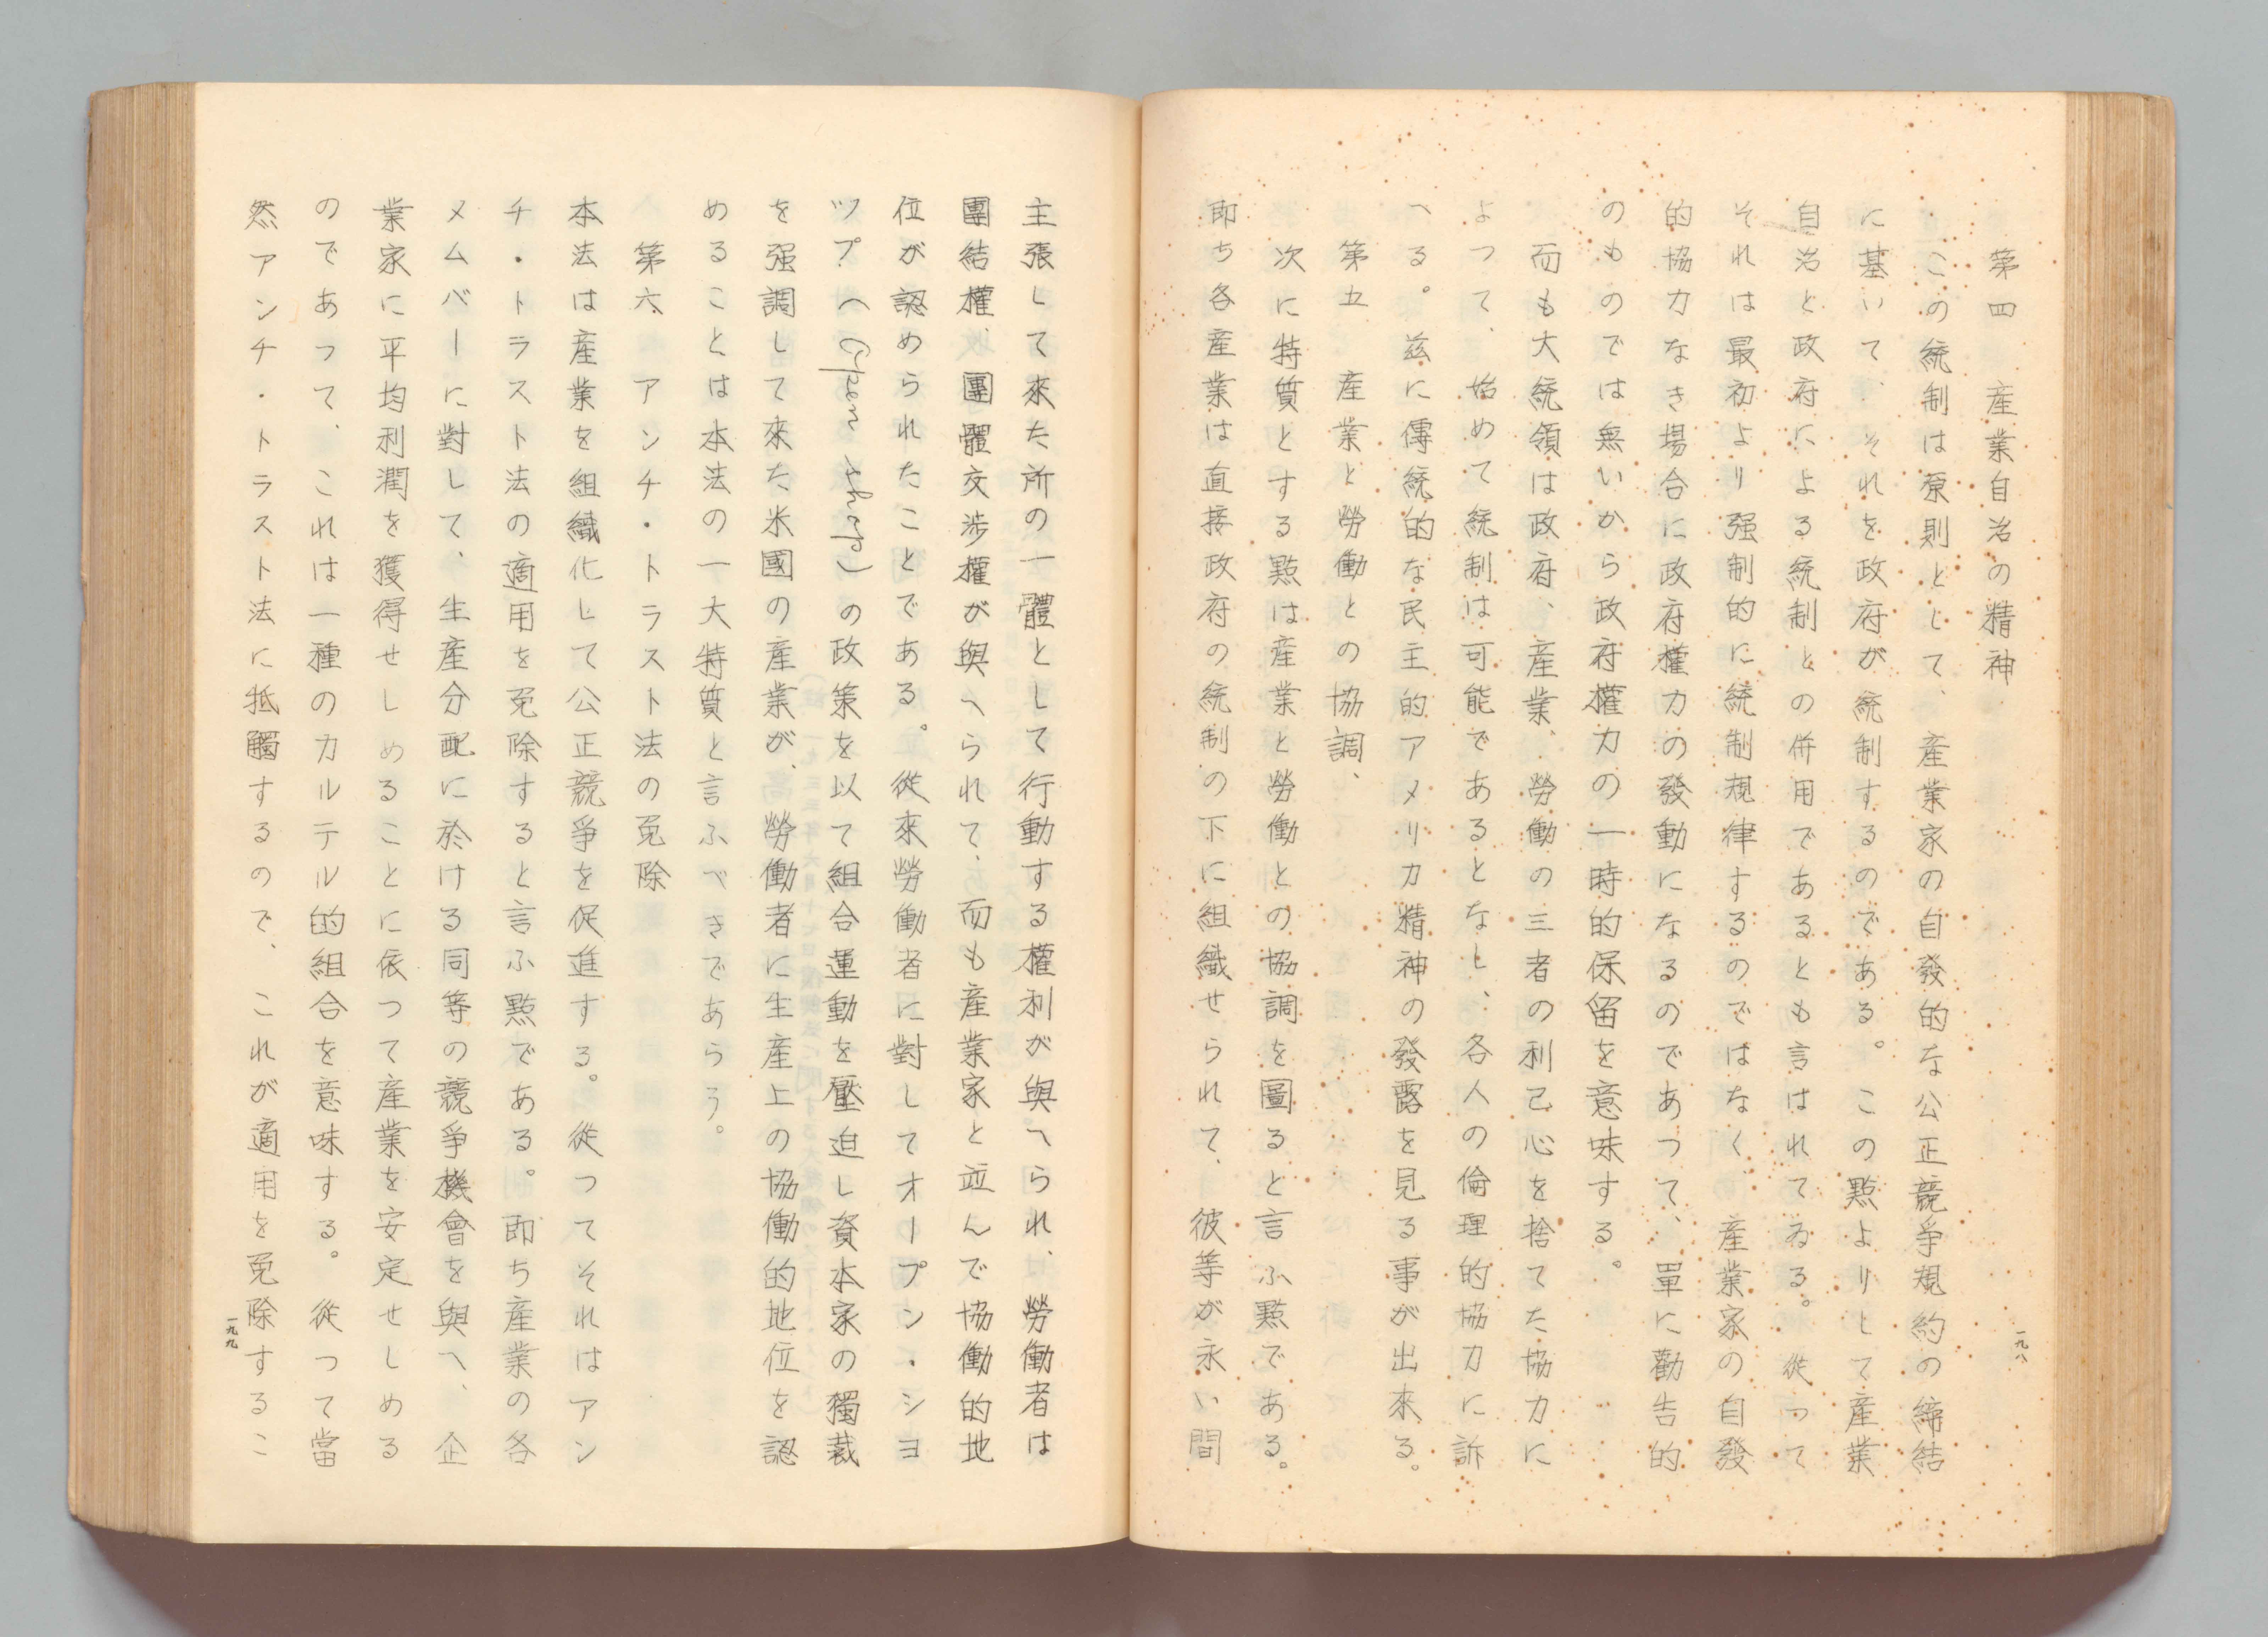 第四　産業自治の精神
この統制は原則として、産業家の自發的な公正競爭規約の締結
に基いて、それを政府が統制するのである。この點よりして産業
自治と政府による統制との併用であるとも言はれてゐる。從って
それは最初より强制的に統制規律するのではなく、産業家の自發
的協力なき場合に政府權力の發動になるのであつて、單に勸告的
のものでは無いから政府權力の一時的保留を意味する。
而も大統領は政府、産業、勞働の三者の利己心を捨てた協力に
よつて、始めて統制は可能であるとなし、各人の倫理的協力に訴
へる。玆に傳統的な民主的アメリカ精神の發露を見る事が出來る。
第五　産業と勞働との協調、
次に特質とする點は産業と勞働との協調を圖ると言ふ點である。
卽ち各産業は直接政府の統制の下に組織せられて、彼等が永い間
一九八
主張して來た所の一體として行動する權利が與へられ、勞働者は
團結權、團體交涉權が與へられて、而も産業家と竝んで協働的地
位が認められたことである。從來勞働者に對してオープン・ショ
ップ（Open shop）の政策を以て組合運動を壓迫し資本家の獨裁
を强調して來た米國の産業が、勞働者に生産上の協働的地位を認
めることは本法の一大特質と言ふべきであらう。
第六　アンチ・トラスト法の免除
本法は産業を組織化して公正競爭を促進する。從つてそれはアン
チ・トラスト法の適用を免除すると言ふ點である。卽ち産業の各
メムバーに對して、生産分配に於ける同等の競爭機會を與へ、企
業家に平均利潤を獲得せしめることに依つて産業を安定せしめる
のであって、これは一種のカルテル的組合を意味する。從つて當
然アンチ・トラスト法に抵觸するので、これが適用を免除するこ
一九九